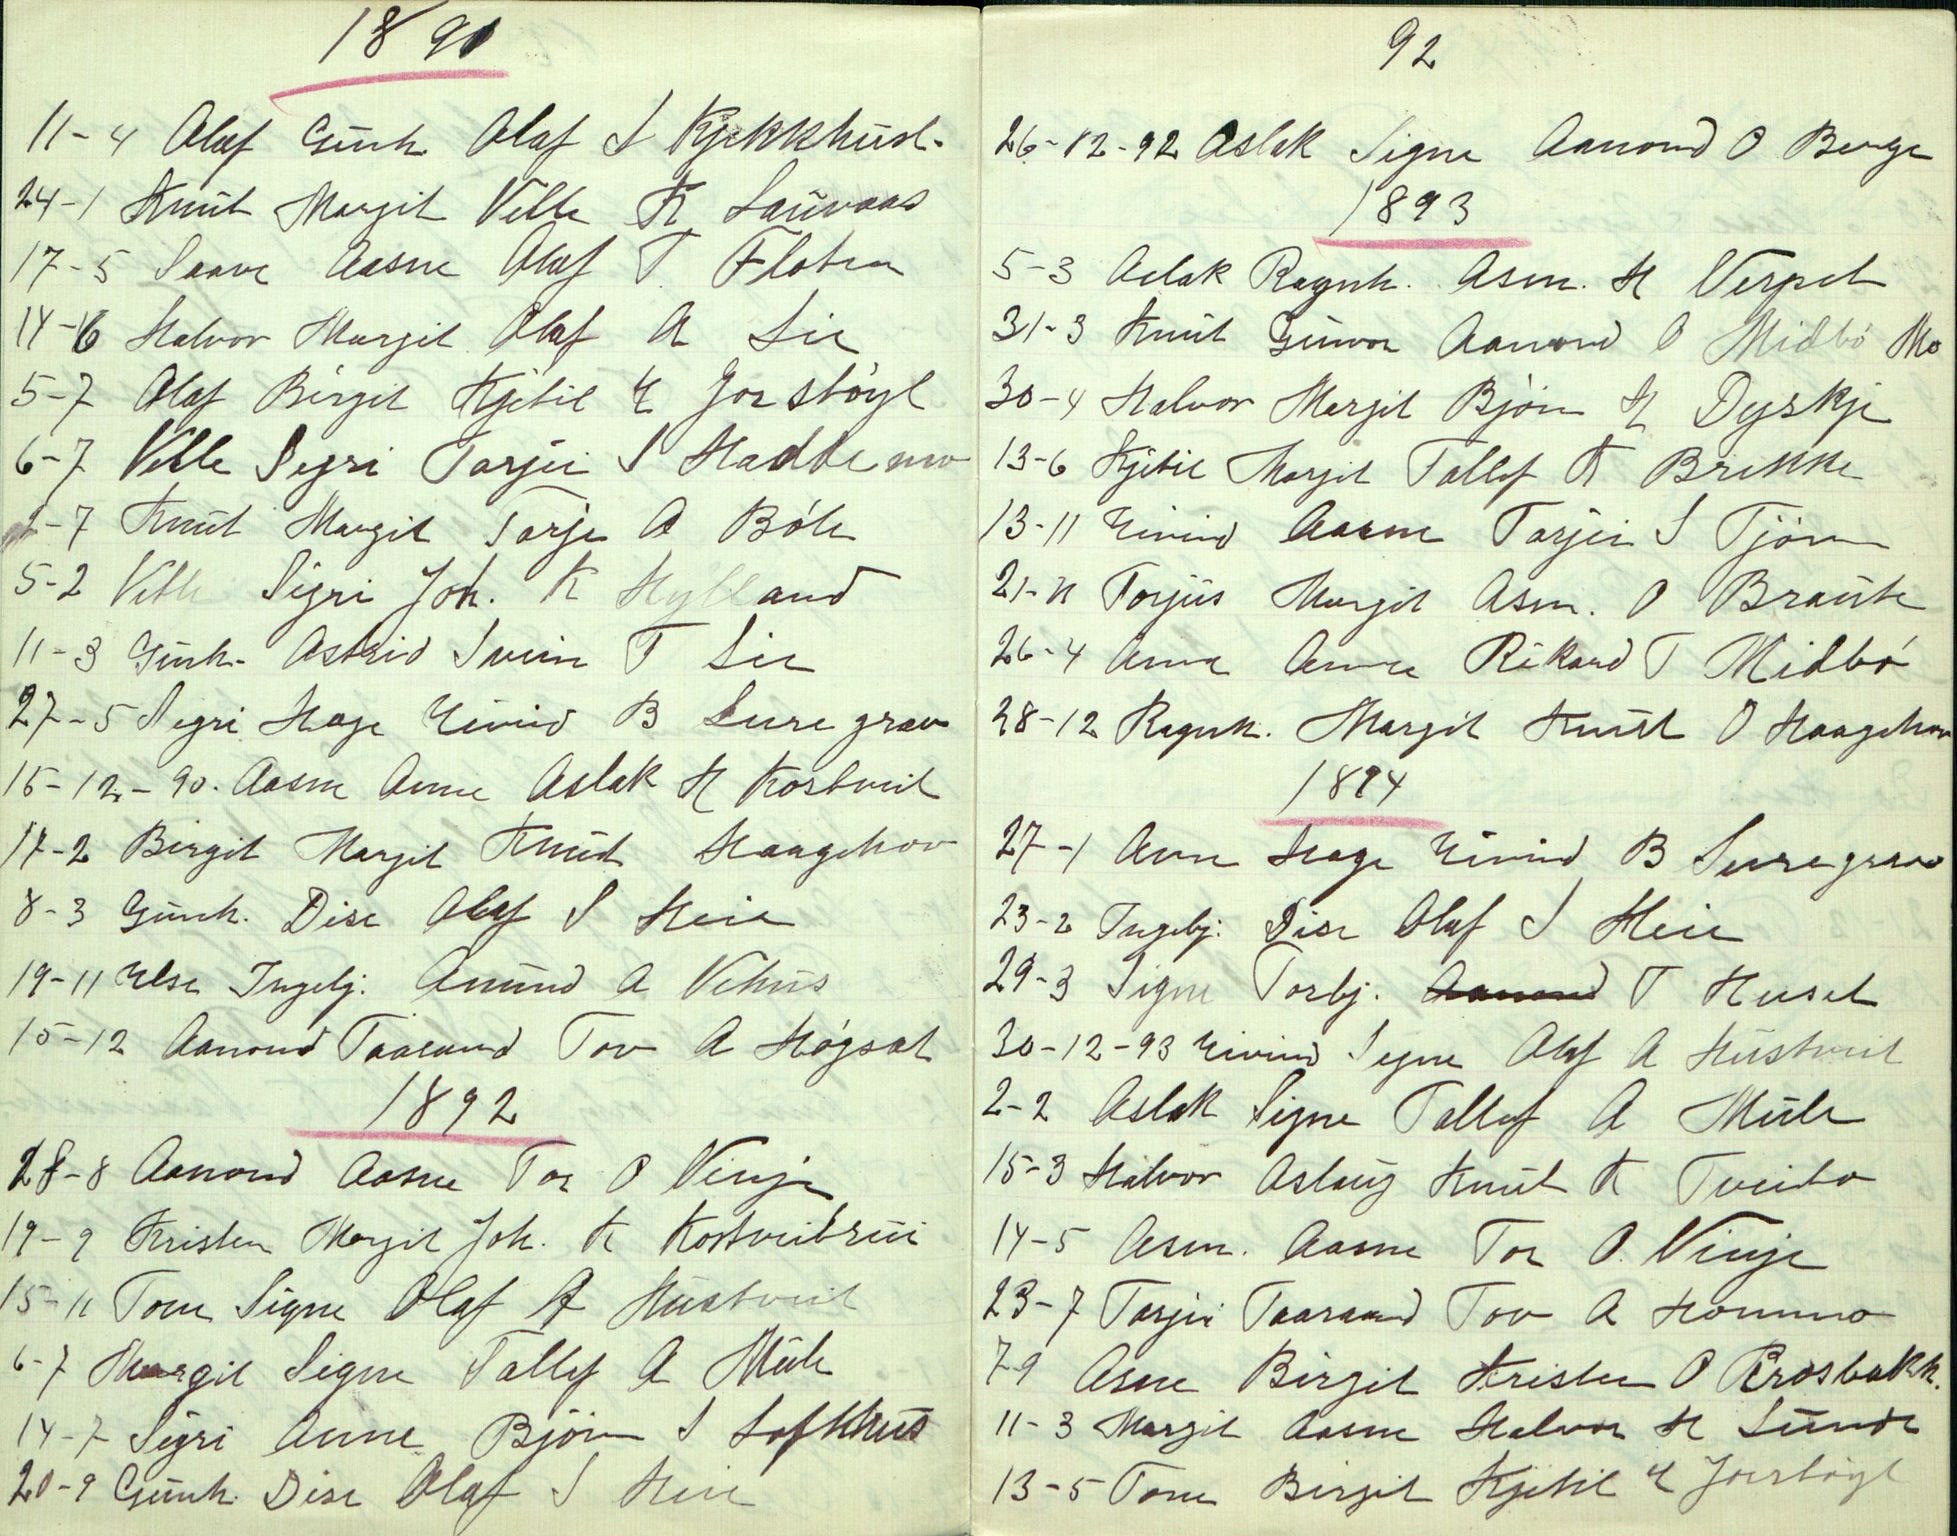 1891
11-4 Olaf Gunh Olaf S Kjekkhusl.
24-1 Knut Margit Vetle K Sauvaas
17-5 Saave Aasne Olaf T Flaten
14-6 Halvor Margit Olaf A Lie
5-7 Olaf Birgit Kjetil E Jorstöyl
6-7 Vetle Sigri Tarjei S Haddemo
-7 Knut Margit Torje A Böte
5-2 Vetle Sigri Joh. K Hylland
11-3 Gunh. Astrid Svein T Lie
27-5 Sigri Hage Eivind B Suregrav
15-12-90. Aasne Anne Aslak H Kostveit
17-2 Birgit Margit Knut Haagehov
8-3 Gunh. Dise Olaf S Heie
19-11 Else Ingebj. Amund A Vehus
15-12 Aanond Taaraand Tov A Högset
1892
28-8 Aanond Aasne Tor O Vinje
19-9 Kristen Margit Joh. K Kostveitrui
15-11 Tone Signe Olaf A Hustveit
6-7 Margit Signe Tallef A Mule
14-7 Sigri Anne Björn S Lofthus
20-9 Gunh. Dise Olaf S Heie
92
26-12-92 Aslak Signe Aanond O Berge
1893
5-3 Aslak Ragnh. Asm. H Verpet
31-3 Knut Gunvor Aanond O Midbö Mo
30-4 Halvor Margit Björn H Dyskje
13-6 Kjetil Margit Tallef K Brekke
13-11 Eivind Aasne Tarjei S Tjörn
21-11 Torjus Margit Asm. O Braute
26-4 Anne Anne Rikard T Midbö
28-12 Ragnh. Margit Knut O Haagehov
1894
27-1 Anne Hage Eivind B Suregrav
23-2 Ingebj. Dise Olaf S Heie
29-3 Signe Torbj. Aanond T Huset
30-12-93 Eivind Signe Olaf A Hustveit
2-2 Aslak Signe Tallef A Mule
15-3 Halvor Aslaug Knut K Tveito
14-5 Asm. Aasne Tor O. Vinje
23-7 Tarjei Taaraand Tov A Hommo
7-9 Asne Birgit Kristen O Prosbakk.
11-3 Margit Aasne Halvor H Sunde
13-5 Tone Birgit Kjetil E Jorstöyl